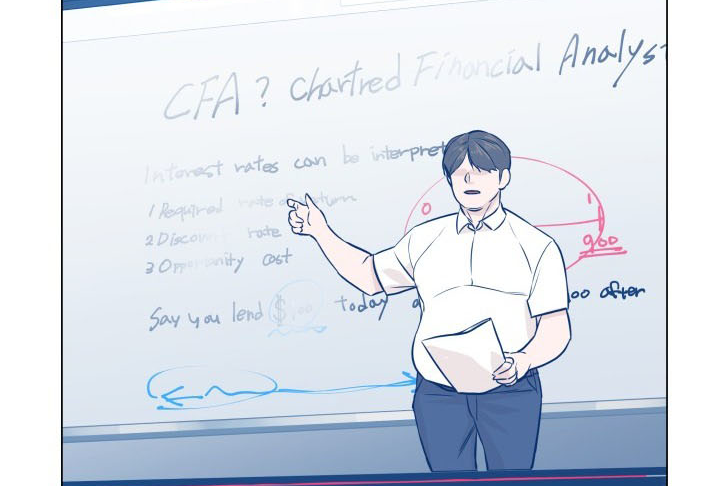 CFA? Chartred Financial Analyst
Interest rates can be interpret
1 Required rate of return
2 Discount rate
3 Opportunity cost
0
1
900
Say you lend $100 today
00 after